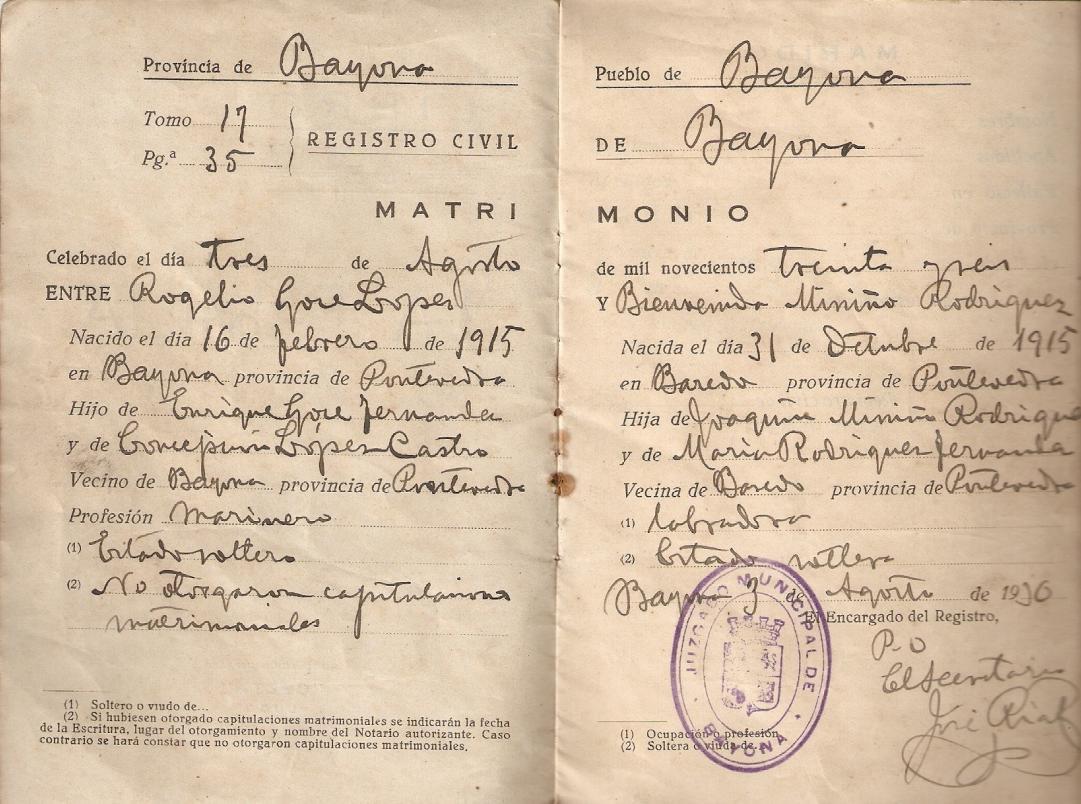 Provincia de Bayona
Tomo 17
Pg.ª 35
REGISTRO CIVIL
MATRI
Celebrado el día tres de Agosto
ENTRE Rogelio Goce López
Nacido el día 16 de febrero de 1915
en Bayona provincia de Pontevedra
Hijo de Enrique Goce Fernanda
y de Concepción López Castro
Vecino de Bayona provincia de Pontevedra
Profesión marinero
(1) Estado soltero
(2) No otorgaron capitulaciones
matrimoniales
(1) Soltero o viudo de...
(2) Si hubiesen otorgado capitulaciones matrimoniales se indicarán la fecha
de la Escritura, lugar del otorgamiento y nombre del Notario autorizante. Caso
contrario se hará constar que no otorgaron capitulaciones matrimoniales.
Pueblo de Bayona
DE Bayona
MONIO
de mil novecientos treinta y seis
Y Bienvenida Miniño Rodriguez
Nacida el día 31 de Octubre de 1915
en Baredo provincia de Pontevedra
Hija de Joaquin Miniño Rodrigue
y de Maria Rodriguez Fernanda
Vecina de Baredo provincia de Pontevedra
(1) labradora
(2) Estado soltera
Bayona 3 de Agosto de 1936
El Encargado del Registro,
P.O
El Secretario
José
JUZGADO MUNICIPAL DE
BAYONA
(1) Ocupación o profesión.
(2) Soltera o viuda de...